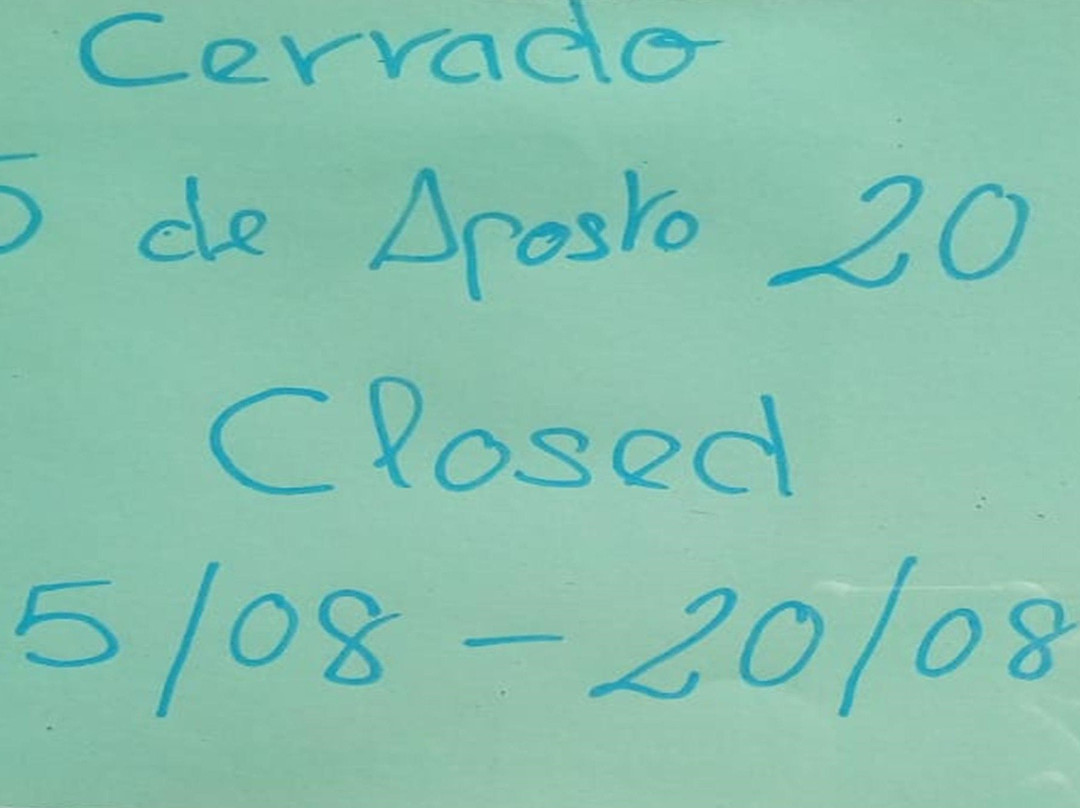 Cerrado
5 de Agosto 20
Closed
5/08 - 20/08